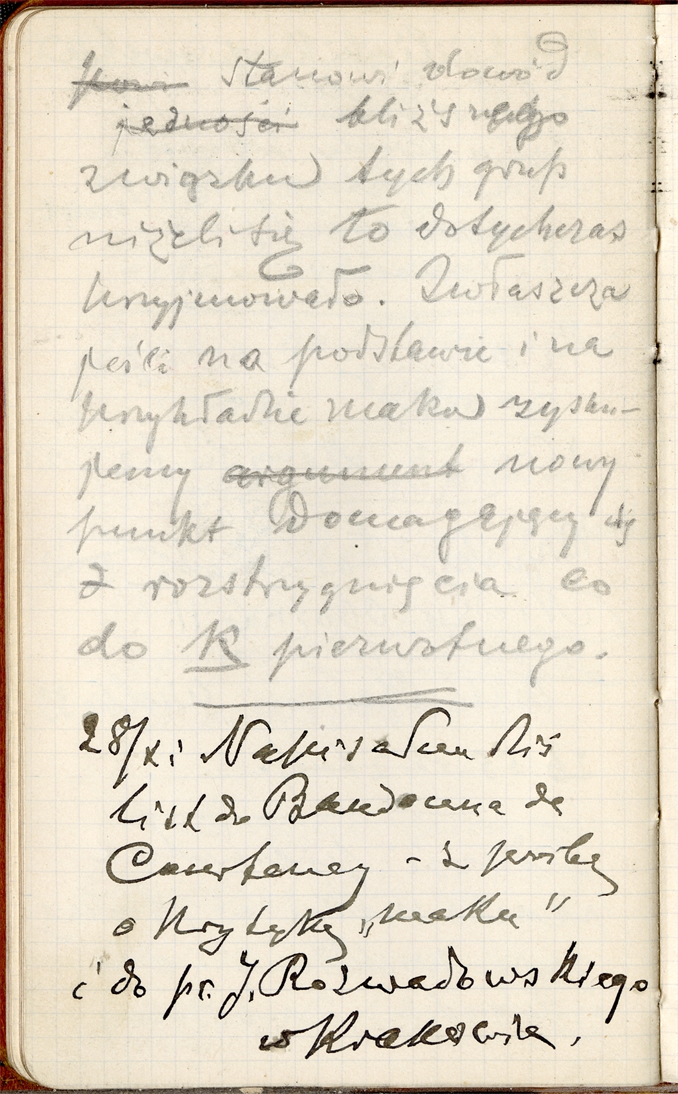 stanowi dowód
jedności bliższego
związku tych grup
niżeli się to dotychczas
przyjmowało. Zwłaszcza
jeśli na podstawie i na
przykładzie maku zysku-
jemy argument nowy
punkt domagający się
z rozstrzygnięcia co
do K pierwotnego.
28/XI Napisałem dziś
list do Baudouina de
Courtenay - z prośbą
o krytykę „maku"
i do pr. J. Rozwadowskiego
w Krakowie.